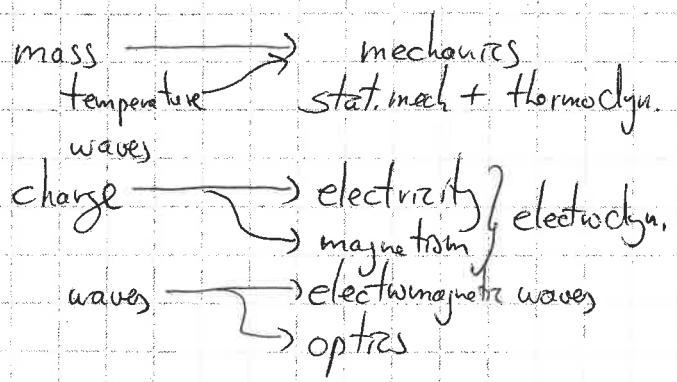 mass → mechanics
temperature → stat. mech + thermodyn.
waves
charge → electrizity
→ magnetism } electrodyn.
waves → electromagnetic waves
→ optics